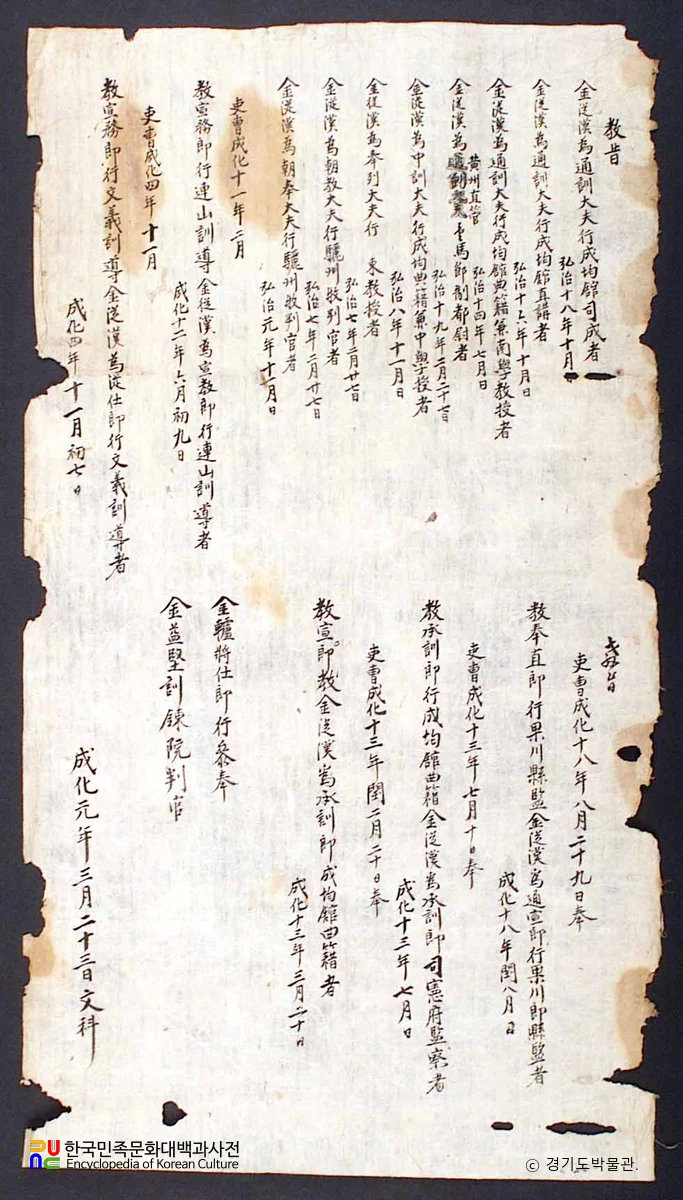 教旨
金従漢為通訓大夫行成均館司成者
弘治十八年十月日
金従漢為通訓大夫行成均館直講者
弘治十六年十月日
金従漢為通訓大夫行成均館典籍兼南學教授者
弘治十四年七月日
金従漢為
黄州直管
馬節制都尉者
弘治十九年二月二十七日
金従漢為中訓大夫行成均典籍兼中學授者
弘治八年十一月日
金従漢為奉列大夫行 東教授者
弘治七年二月廿七日
金従漢為朝散大夫行驪州牧判官者
弘治七年二月廿七日
金従漢為朝奉大夫行驪州牧判官者
弘治元年十一月日
吏曹成化十一年二月
教宣務郎行連山訓導金従漢為宣教郎行連山訓導者
成化十二年六月初九日
吏曹成化四年十一月
教宣務郎行文義訓導金従漢為従仕郎行文義訓導者
成化四年十一月初七日
教旨
吏曹成化十八年八月二十九日奉
教奉直郎行果川縣監金従漢為通宣郎行果川郎縣監者
成化十八年閏八月日
吏曹成化十三年七月十日奉
教承訓郎行成均館典籍金従漢為承訓郎司憲府監察者
成化十三年七月日
吏曹成化十三年閏二月二十日奉
教宣郎教金従漢為承訓郎成均館典籍者
成化十三年三月二十日
金轤將仕郎行參奉
金益堅訓鍊院判官
成化元年三月二十三日文科
한국민족문화대백과사전
Encyclopedia of Korean Culture
© 경기도박물관.